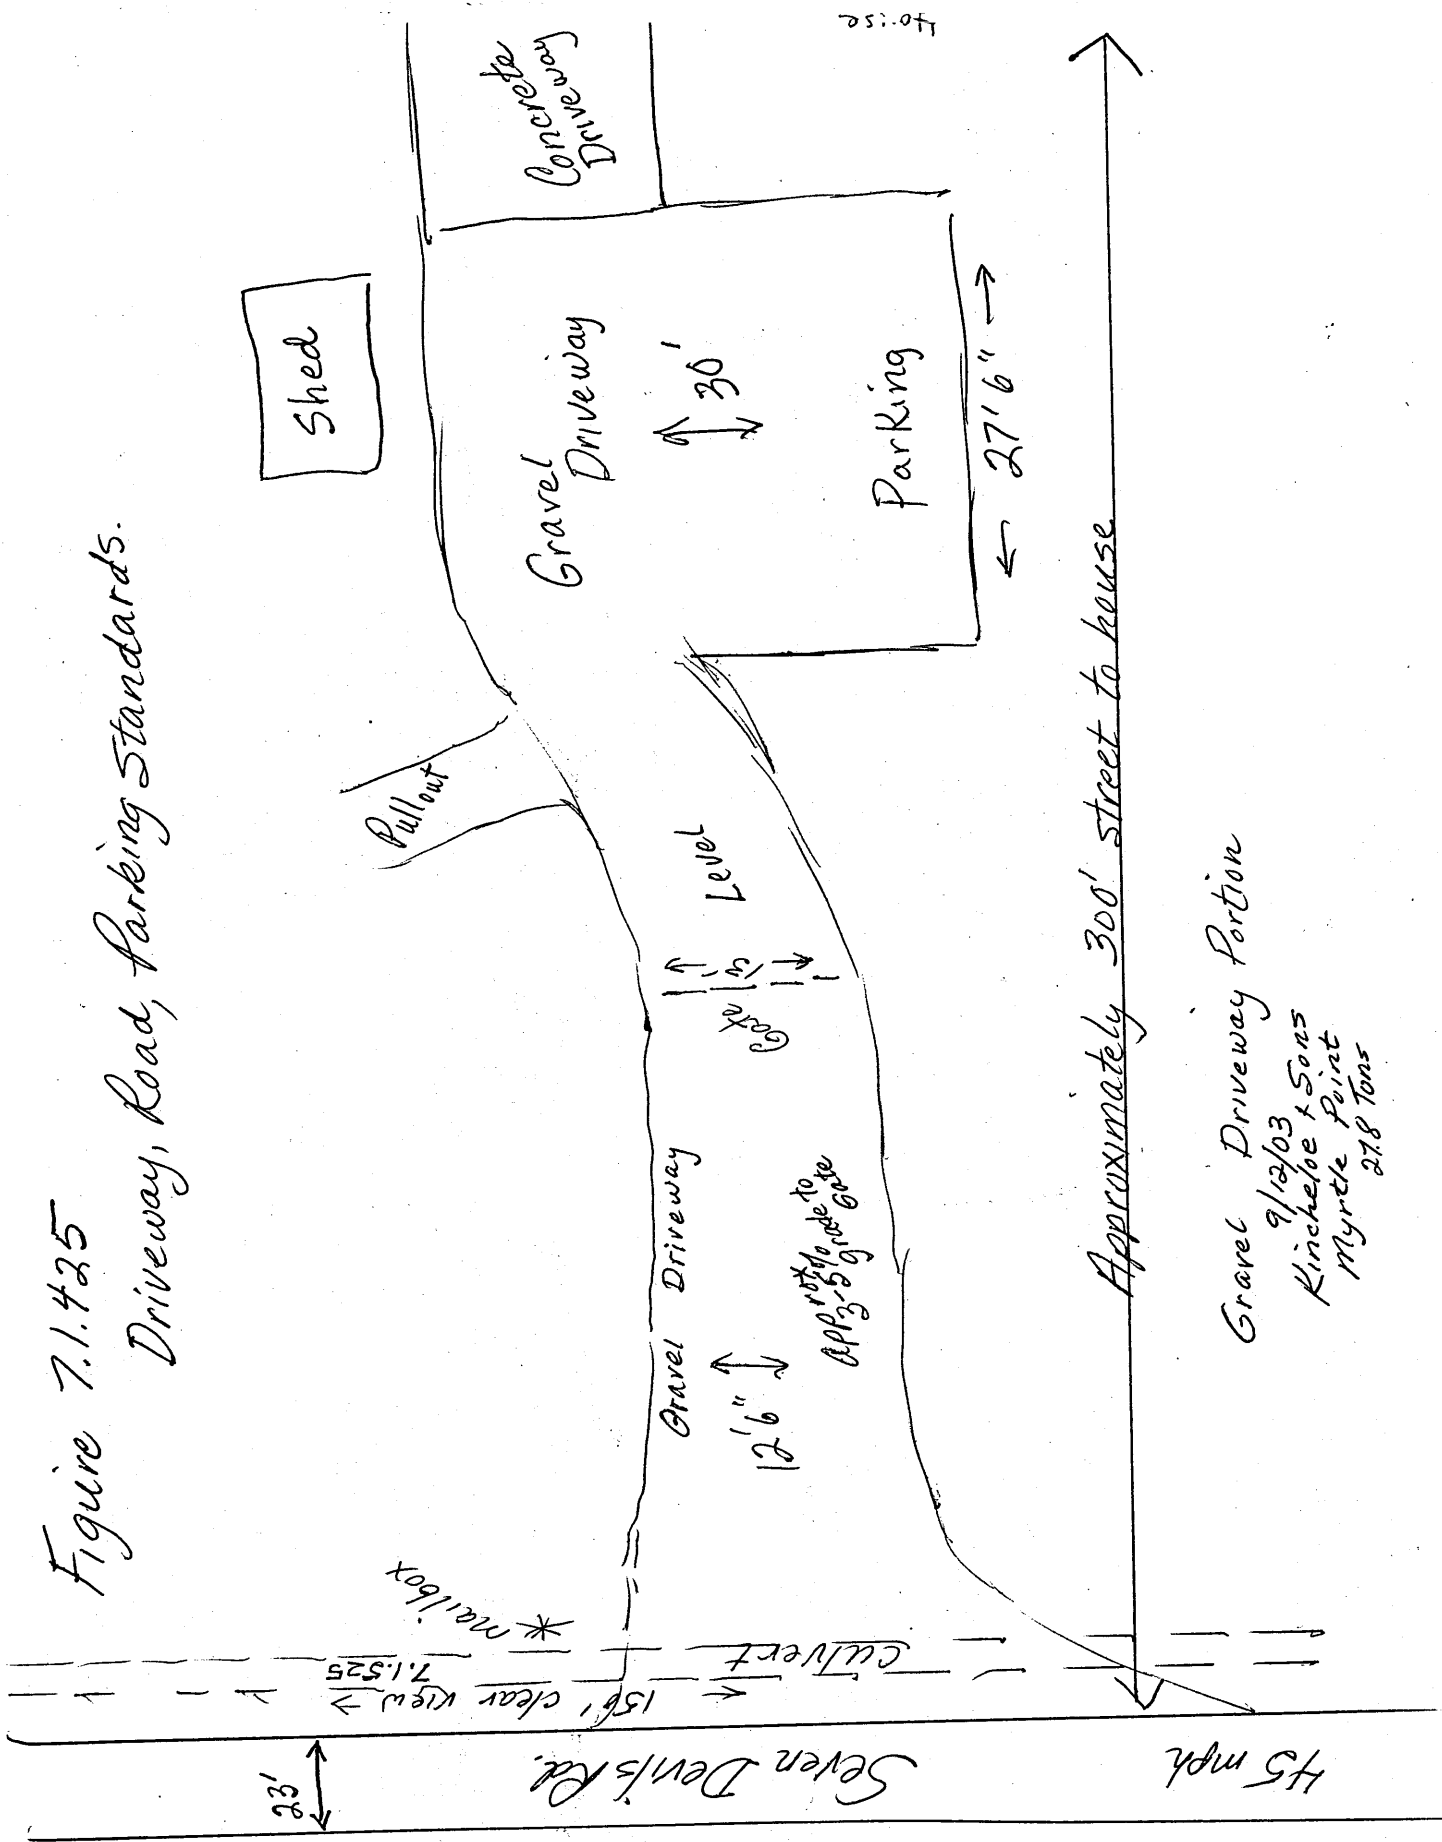 Figure 7.1.425
Driveway, Road, Parking Standards.
Shed
Concrete
Driveway
House
Pullout
Gravel
Driveway
30'
Parking
← 27' 6" →
Level
Gate
Gravel Driveway
12'6"
approx
3-5% grade to
Gate
* mailbox
culvert
7.1.525
← 150' clear view →
23'
Seven Devils Rd.
45 mph
Approximately 300' street to house
Gravel Driveway Portion
9/12/03
Kincheloe & Sons
Myrtle Point
27.8 Tons